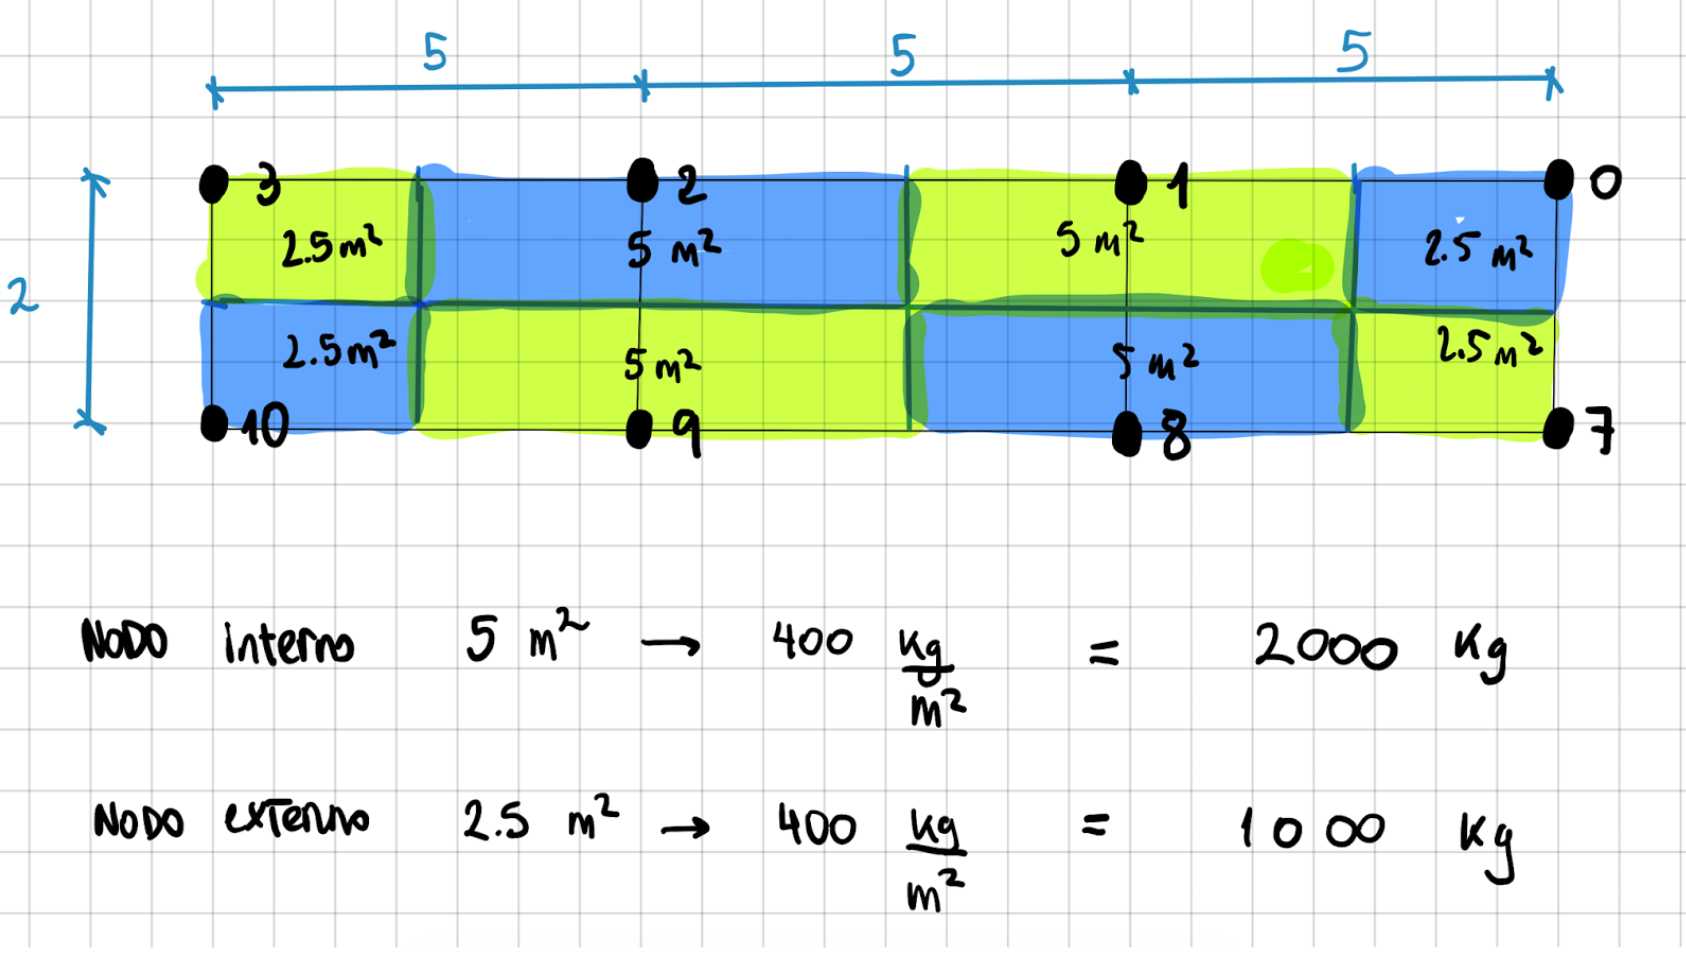 5 5 5
3 2 1 0
2.5 m² 5 m² 5 m² 2.5 m²
2
2.5 m² 5 m² 5 m² 2.5 m²
10 9 8 7
NODO interno 5 m² → 400 kg/m² = 2000 Kg
NODO externo 2.5 m² → 400 kg/m² = 1000 Kg